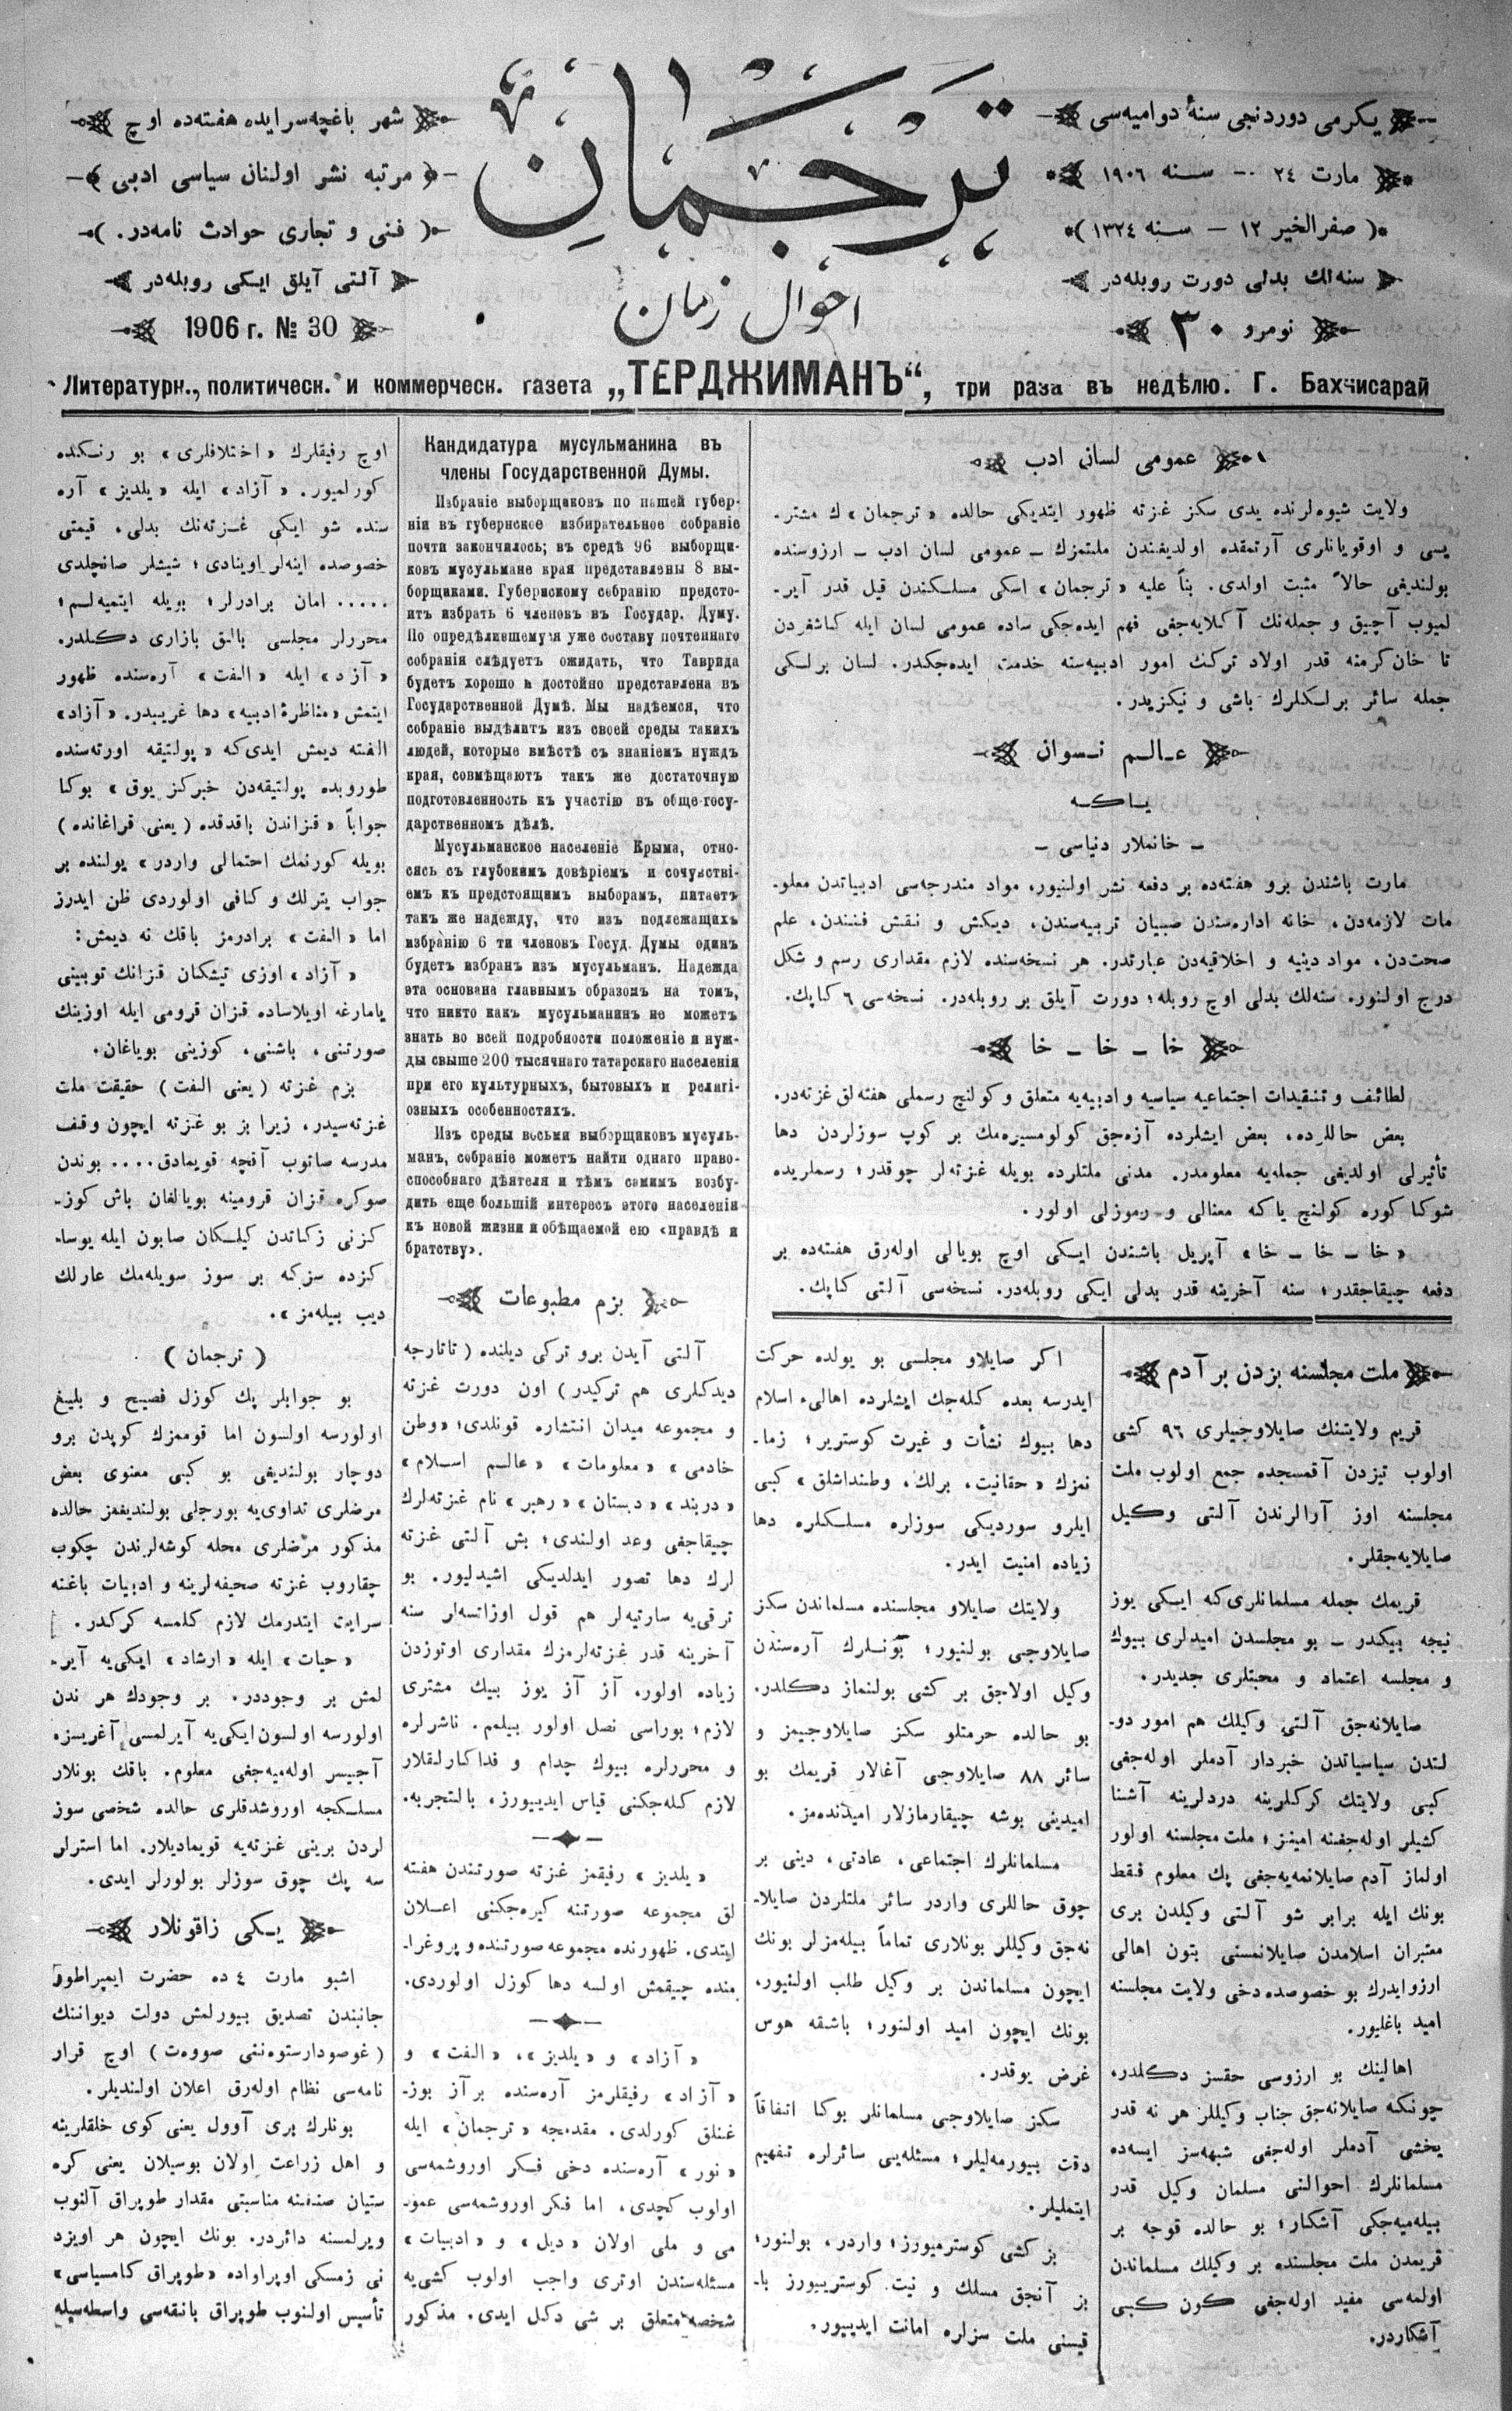 یكرمی دوردنجی سنهٔ دوامیه‌سی
مارت ٢٤ — سنه ١٩٠٦
( صفرالخیر ١٢ — سنه ١٣٢٤ )
سنه‌لك بدلی دورت روبله‌در
نومرو ٣٠
ترجمان
احوال زمان
شهر باغچه‌سرایده هفته‌ده اوچ
مرتبه نشر اولنان سیاسی ادبی
( فنی و تجاری حوادث نامه‌در. )
آلتی آیلق ایكی روبله‌در
1906 г. № 30
Литературн., политическ. и коммерческ. газета „ТЕРДЖИМАНЪ“, три раза въ недѣлю. Г. Бахчисарай
عمومی لسانی ادب
ولایت شیوه‌لرنده یدی سكز غزته ظهور ایتدیكی حالده «ترجمان»ك مشتر-
یسی و اوقویانلری آرتمقده اولدیغندن ملیتمزك — عمومی لسان ادب — ارزوسنده
بولندیغی حالاً مثبت اولدی. بناً علیه «ترجمان» اسكی مسلكندن قیل قدر آیر-
لمیوب آچیق و جمله‌نك آكلایه‌جغی فهم ایده‌جكی ساده عمومی لسان ایله كاشغردن
تا خان كرمنه قدر اولاد تركنك امور ادبیه‌سنه خدمت ایده‌جكدر. لسان برلكی
جمله سائر برلكلرك باشی و نیكزیدر.
عالم نسوان
یاكه
— خانملار دنیاسی —
مارت باشندن برو هفته‌ده بر دفعه نشر اولنیور، مواد مندرجه‌سی ادبیاتدن معلو-
مات لازمه‌دن، خانه اداره‌سندن صبیان تربیه‌سندن، دیكش و نقش فنندن، علم
صحت‌دن، مواد دینیه و اخلاقیه‌دن عبارتدر. هر نسخه‌سنده لازم مقداری رسم و شكل
درج اولنور. سنه‌لك بدلی اوچ روبله؛ دورت آیلق بر روبله‌در. نسخه‌سی ٦ كاپك.
خا — خا — خا
لطائف و تنقیدات اجتماعیه سیاسیه و ادبیه‌یه متعلق و كولنچ رسملی هفته‌لق غزته‌در.
بعض حاللرده، بعض ایشلرده آزه‌جق كولومسیره‌مك بر كوپ سوزلردن دها
تأثیرلی اولدیغی جمله‌یه معلومدر. مدنی ملتلرده بویله غزته‌لر چوقدر؛ رسملریده
شوكا كوره كولنچ یاكه معنالی و رموزلی اولور.
«خا — خا — خا» آپریل باشندن ایكی اوچ بویالی اوله‌رق هفته‌ده بر
دفعه چیقاجقدر؛ سنه آخرینه قدر بدلی ایكی روبله‌در. نسخه‌سی آلتی كاپك.
ملت مجلسنه بزدن بر آدم
قریم ولایتنك صایلاوجیلری ٩٦ كشی
اولوب تیزدن آقمسجده جمع اولوب ملت
مجلسنه اوز آرالرندن آلتی وكیل
صایلایه‌جقلر.
قریمك جمله مسلمانلری‌كه ایكی یوز
نیجه بیكدر — بو مجلسدن امیدلری بیوك
و مجلسه اعتماد و محبتلری جدیدر.
صایلانه‌جق آلتی وكیلك هم امور دو-
لتدن سیاسیاتدن خبردار آدملر اوله‌جغی
كبی ولایتك كركلرینه دردلرینه آشنا
كشیلر اوله‌جغنه امینز؛ ملت مجلسنه اولور
اولماز آدم صایلانمه‌یه‌جغی پك معلوم فقط
بونك ایله برابر شو آلتی وكیلدن بری
معتبران اسلامدن صایلانمسنی بتون اهالی
ارزوایدرك بو خصوصده دخی ولایت مجلسنه
امید باغلیور.
اهالینك بو ارزوسی حقسز دكلدر،
چونكه صایلانه‌جق جناب وكیللر هر نه قدر
یخشی آدملر اوله‌جغی شبهه‌سز ایسه‌ده
مسلمانلرك احوالنی مسلمان وكیل قدر
بیله‌میه‌جكی آشكار؛ بو حالده قوجه بر
قریمدن ملت مجلسنده بر وكیلك مسلماندن
اولمه‌سی مفید اوله‌جغی كون كبی
آشكاردر.
اكر صایلاو مجلسی بو یولده حركت
ایدرسه بعده كله‌جك ایشلرده اهالیء اسلام
دها بیوك نشأت و غیرت كوستریر؛ زما-
نمزك «حقانیت، برلك، وطنداشلق» كبی
ایلرو سوردیكی سوزلره مسلكلره دها
زیاده امنیت ایدر.
ولایتك صایلاو مجلسنده مسلماندن سكز
صایلاوجی بولنیور؛ بونلرك آره‌سندن
وكیل اولاجق بر كشی بولنماز دكلدر.
بو حالده حرمتلو سكز صایلاوجیمز و
سائر ٨٨ صایلاوجی آغالار قریمك بو
امیدینی بوشه چیقارمازلار امیدنده‌مز.
مسلمانلرك اجتماعی، عادتی، دینی بر
چوق حاللری واردر سائر ملتلردن صایلا-
نه‌جق وكیللر بونلاری تماماً بیله‌مزلر بونك
ایچون مسلماندن بر وكیل طلب اولنیور،
بونك ایچون امید اولنور؛ باشقه هوس
غرض یوقدر.
سكز صایلاوجی مسلمانلر بوكا اتفاقاً
دقت بیورمه‌لیلر؛ مسئله‌یی سائرلره تفهیم
ایتملیلر.
بز كشی كوسترمیورز؛ واردر، بولنور؛
بز آنجق مسلك و نیت كوستریبورز با-
قیسنی ملت سزلره امانت ایدیبور.
Кандидатура мусульманина въ
члены Государственной Думы.
Избраніе выборщиковъ по нашей губер-
ніи въ губернское избирательное собраніе
почти закончилось; въ средѣ 96 выборщи-
ковъ мусульмане края представлены 8 вы-
борщиками. Губернскому собранію предсто-
итъ избрать 6 членовъ въ Государ. Думу.
По опредѣлившемуся уже составу почтеннаго
собранія слѣдуетъ ожидать, что Таврида
будетъ хорошо и достойно представлена въ
Государственной Думѣ. Мы надѣемся, что
собраніе выдѣлитъ изъ своей среды такихъ
людей, которые вмѣстѣ съ знаніемъ нуждъ
края, совмѣщаютъ такъ же достаточную
подготовленность къ участію въ обще-госу-
дарственномъ дѣлѣ.
Мусульманское населеніе Крыма, отно-
сясь съ глубокимъ довѣріемъ и сочувстві-
емъ къ предстоящимъ выборамъ, питаетъ
такъ же надежду, что изъ подлежащихъ
избранію 6 ти членовъ Госуд. Думы одинъ
будетъ избранъ изъ мусульманъ. Надежда
эта основана главнымъ образомъ на томъ,
что никто какъ мусульманинъ не можетъ
знать во всей подробности положеніе и нуж-
ды свыше 200 тысячнаго татарскаго населенія
при его культурныхъ, бытовыхъ и религі-
озныхъ особенностяхъ.
Изъ среды восьми выборщиковъ мусуль-
манъ, собраніе можетъ найти однаго право-
способнаго дѣятеля и тѣмъ самимъ возбу-
дить еще большій интересъ этого населенія
къ новой жизни и обѣщаемой ею «правдѣ и
братству».
بزم مطبوعات
آلتی آیدن برو تركی دیلنده (تاتارجه
دیدكلری هم تركیدر) اون دورت غزته
و مجموعه میدان انتشاره قونلدی؛ «وطن
خادمی» «معلومات» «عالم اسلام»
«دربند» «دبستان» «رهبر» نام غزته‌لرك
چیقاجغی وعد اولندی؛ بش آلتی غزته
لرك دها تصور ایدلدیكی اشیدلیور. بو
ترقی‌یه سارتیه‌لر هم قول اوزاتسه‌لر سنه
آخرینه قدر غزته‌لرمزك مقداری اوتوزدن
زیاده اولور، آز آز یوز بیك مشتری
لازم؛ بوراسی نصل اولور بیلمم. ناشرلره
و محررلره بیوك چدام و فداكارلقلار
لازم كله‌جكنی قیاس ایدیبورز، بالتجربه.
«یلدیز» رفیقمز غزته صورتندن هفته
لق مجموعه صورتنه كیره‌جكنی اعلان
ایتدی. ظهورنده مجموعه صورتنده و پروغرا-
منده چیقمش اولسه دها كوزل اولوردی.
«آزاد» و «یلدیز»، «الفت» و
«آزاد» رفیقلرمز آره‌سنده برآز بوز-
غنلق كورلدی. مقدمجه «ترجمان» ایله
«نور» آره‌سنده دخی فكر اوروشمه‌سی
اولوب كچدی، اما فكر اوروشمه‌سی عمو-
می و ملی اولان «دیل» و «ادبیات»
مسئله‌سندن اوتری واجب اولوب كشی‌یه
شخصه متعلق بر شی دكل ایدی. مذكور
اوچ رفیقلرك «اختلافلری» بو رنكده
كورلمیور. «آزاد» ایله «یلدیز» آره
سنده شو ایكی غزته‌نك بدلی، قیمتی
خصوصده اینه‌لر اوینادی؛ شیشلر صانچلدی
..... امان برادرلر؛ بویله ایتمیه‌لم؛
محررلر مجلسی بالق بازاری دكلدر.
«آزاد» ایله «الفت» آره‌سنده ظهور
ایتمش «مناظرهٔ ادبیه» دها غریبدر. «آزاد»
الفته دیمش ایدی‌كه «پولتیقه اورته‌سنده
طوروبده پولتیقه‌دن خبركز یوق» بوكا
جواباً «قزاندن باقدقده (یعنی قراغانده)
بویله كورنمك احتمالی واردر» یولنده بر
جواب یترلك و كافی اولوردی ظن ایدرز
اما «الفت» برادرمز باقك نه دیمش:
«آزاد» اوزی تیشكان قزانك توبینی
یامارغه اویلاساده قزان قرومی ایله اوزینك
صورتنی، باشنی، كوزینی بویاغان.
بزم غزته (یعنی الفت) حقیقت ملت
غزته‌سیدر، زیرا بز بو غزته ایچون وقف
مدرسه صاتوب آقچه قویمادق.... بوندن
صوكره قزان قرومینه بویالغان باش كوز-
كزنی زكاتدن كیلكان صابون ایله یوسا-
كزده سزكه بر سوز سویله‌مك عارلك
دیب بیله‌مز».
( ترجمان )
بو جوابلر پك كوزل فصیح و بلیغ
اولورسه اولسون اما قوممزك كوپدن برو
دوچار بولندیغی بو كبی معنوی بعض
مرضلری تداوی‌یه بورجلی بولندیغمز حالده
مذكور مرضلری محله كوشه‌لرندن چكوب
چقاروب غزته صحیفه‌لرینه و ادبیات باغنه
سرایت ایتدرمك لازم كلمسه كركدر.
«حیات» ایله «ارشاد» ایكی‌یه آیر-
لمش بر وجوددر. بر وجودك هر ندن
اولورسه اولسون ایكی‌یه آیرلمسی آغریسزه
آجیسز اوله‌میه‌جغی معلوم. باقك بونلار
مسلكجه اوروشدقلری حالده شخصی سوز
لردن برینی غزته‌یه قویمادیلار. اما استرلر
سه پك چوق سوزلر بولورلر ایدی.
یكی زاقونلار
اشبو مارت ٤ ده حضرت ایمپراطور
جانبندن تصدیق بیورلمش دولت دیواننك
(غوصودارستوه‌ننی صووه‌ت) اوچ قرار
نامه‌سی نظام اوله‌رق اعلان اولندیلر.
بونلرك بری آوول یعنی كوی خلقلرینه
و اهل زراعت اولان بوسیلان یعنی كره
ستیان صنفنه مناسبتی مقدار طوپراق آلنوب
ویرلمسنه دائردر. بونك ایچون هر اویزد
نی زمسكی اوپراواده «طوپراق كامسیاسی»
تأسیس اولنوب طوپراق بانقه‌سی واسطه‌سیله